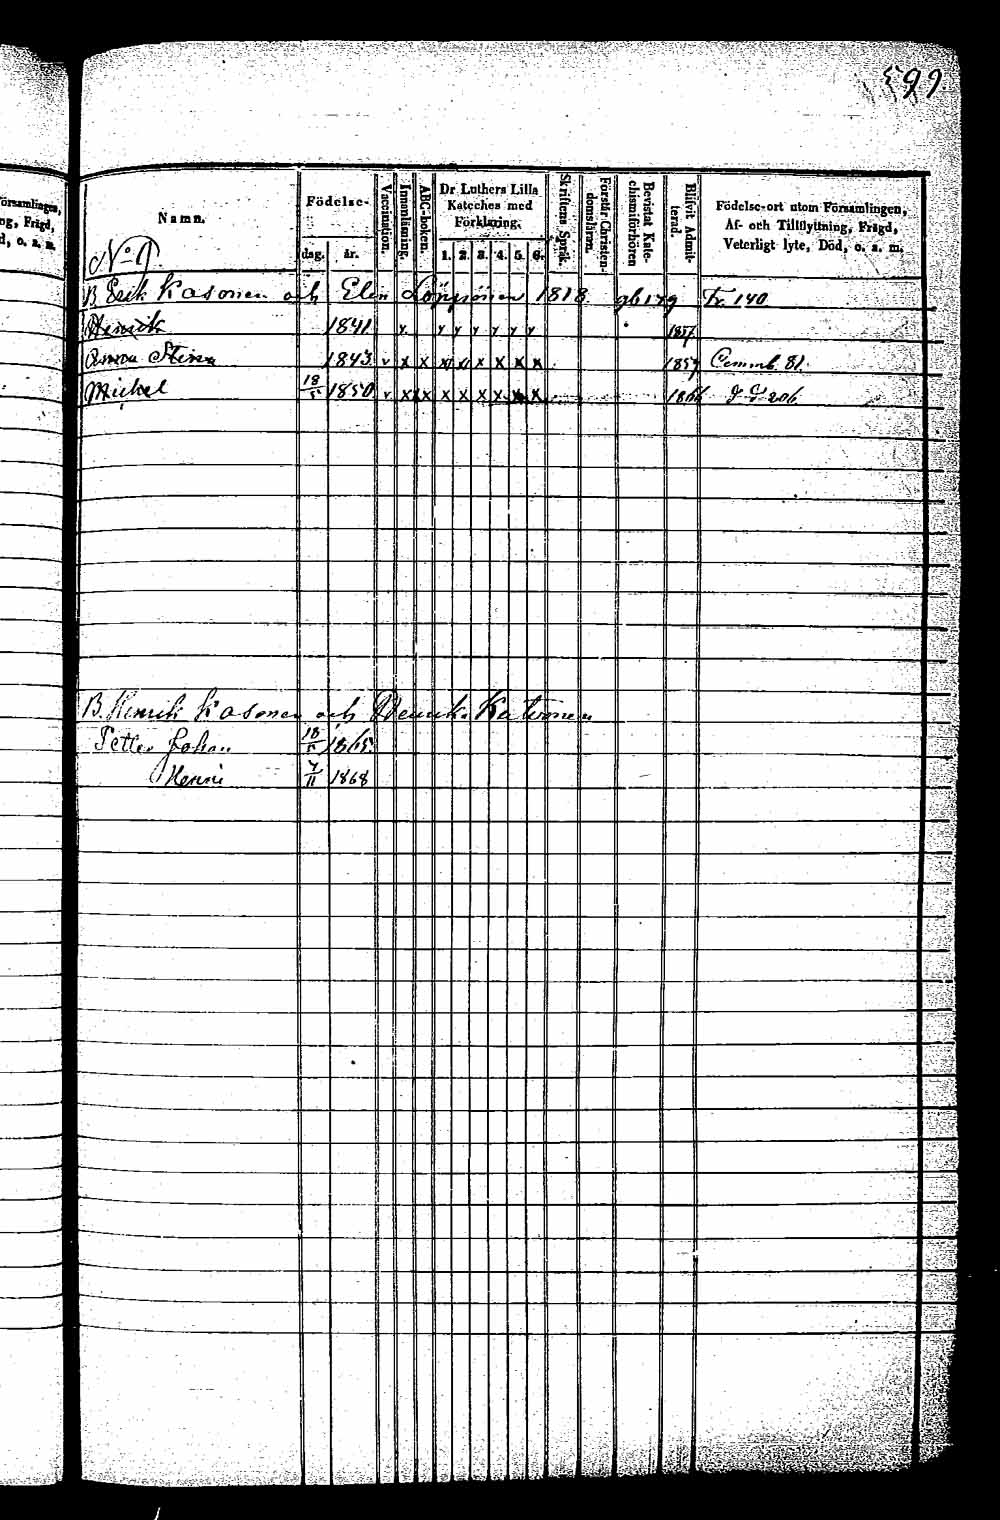 599.
Församlingen,
ng, Frägd,
d, o. s. m.
Namn.
Födelse-
dag. år.
Vaccination.
Innanläsning.
ABC-boken.
Dr Luthers Lilla
Kateches med
Förklaring.
1. 2. 3. 4. 5. 6.
Skriftens Språk.
Förstår Christen-
domsläran.
Bevistat Kate-
chismiförhören
Blifvit Admit-
terad.
Födelse-ort utom Församlingen,
Af- och Tillflyttning, Frägd,
Veterligt lyte, Död, o. s. m.
No 1
B. Erik Kasonen och Elin 1818 Fr. 140
Henrik 1841 y. y y y y y y 1857
Anna Stina 1843 v x x x x x x x x 1859 81.
Mickel 18/5 1850 v x x x x x x x x 1866 206
B. Henrik Kasonen och
Petter Johan 18/5 1865.
Henric 7/11 1868